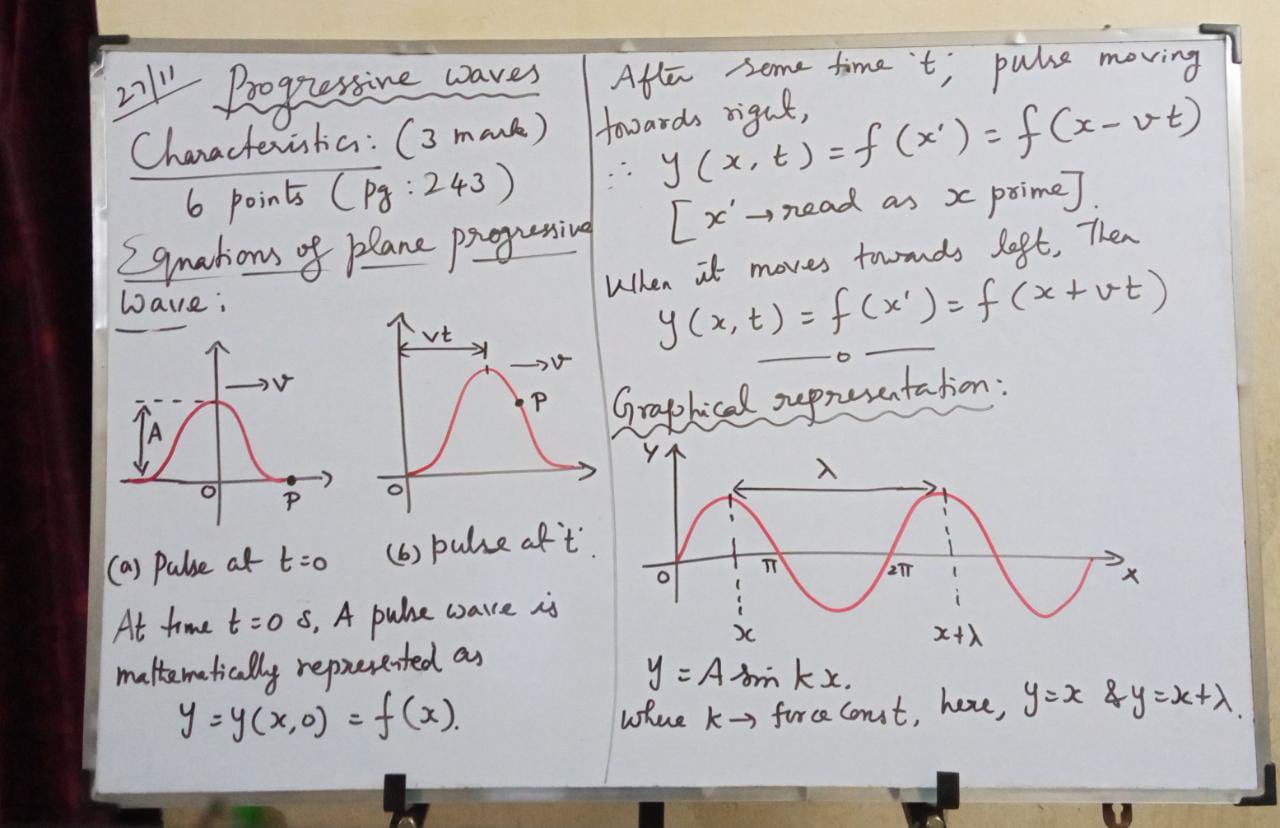 27/11 Progressive waves
Characteristics: (3 mark)
6 points (pg: 243)
Equations of plane progressive
wave:
A
→v
O
P
vt
→v
P
O
(a) Pulse at t=0
(b) pulse at 't'.
At time t=0 s, A pulse wave is
mathematically represented as
y = y(x,0) = f(x).
After some time 't', pulse moving
towards right,
∴ y(x,t) = f(x') = f(x-vt)
[x' → read as x prime].
When it moves towards left, Then
y(x,t) = f(x') = f(x+vt)
Graphical representation:
Y
λ
O
π
2π
x
x
x+λ
y = A sin kx.
where k → force const, here, y=x & y=x+λ.